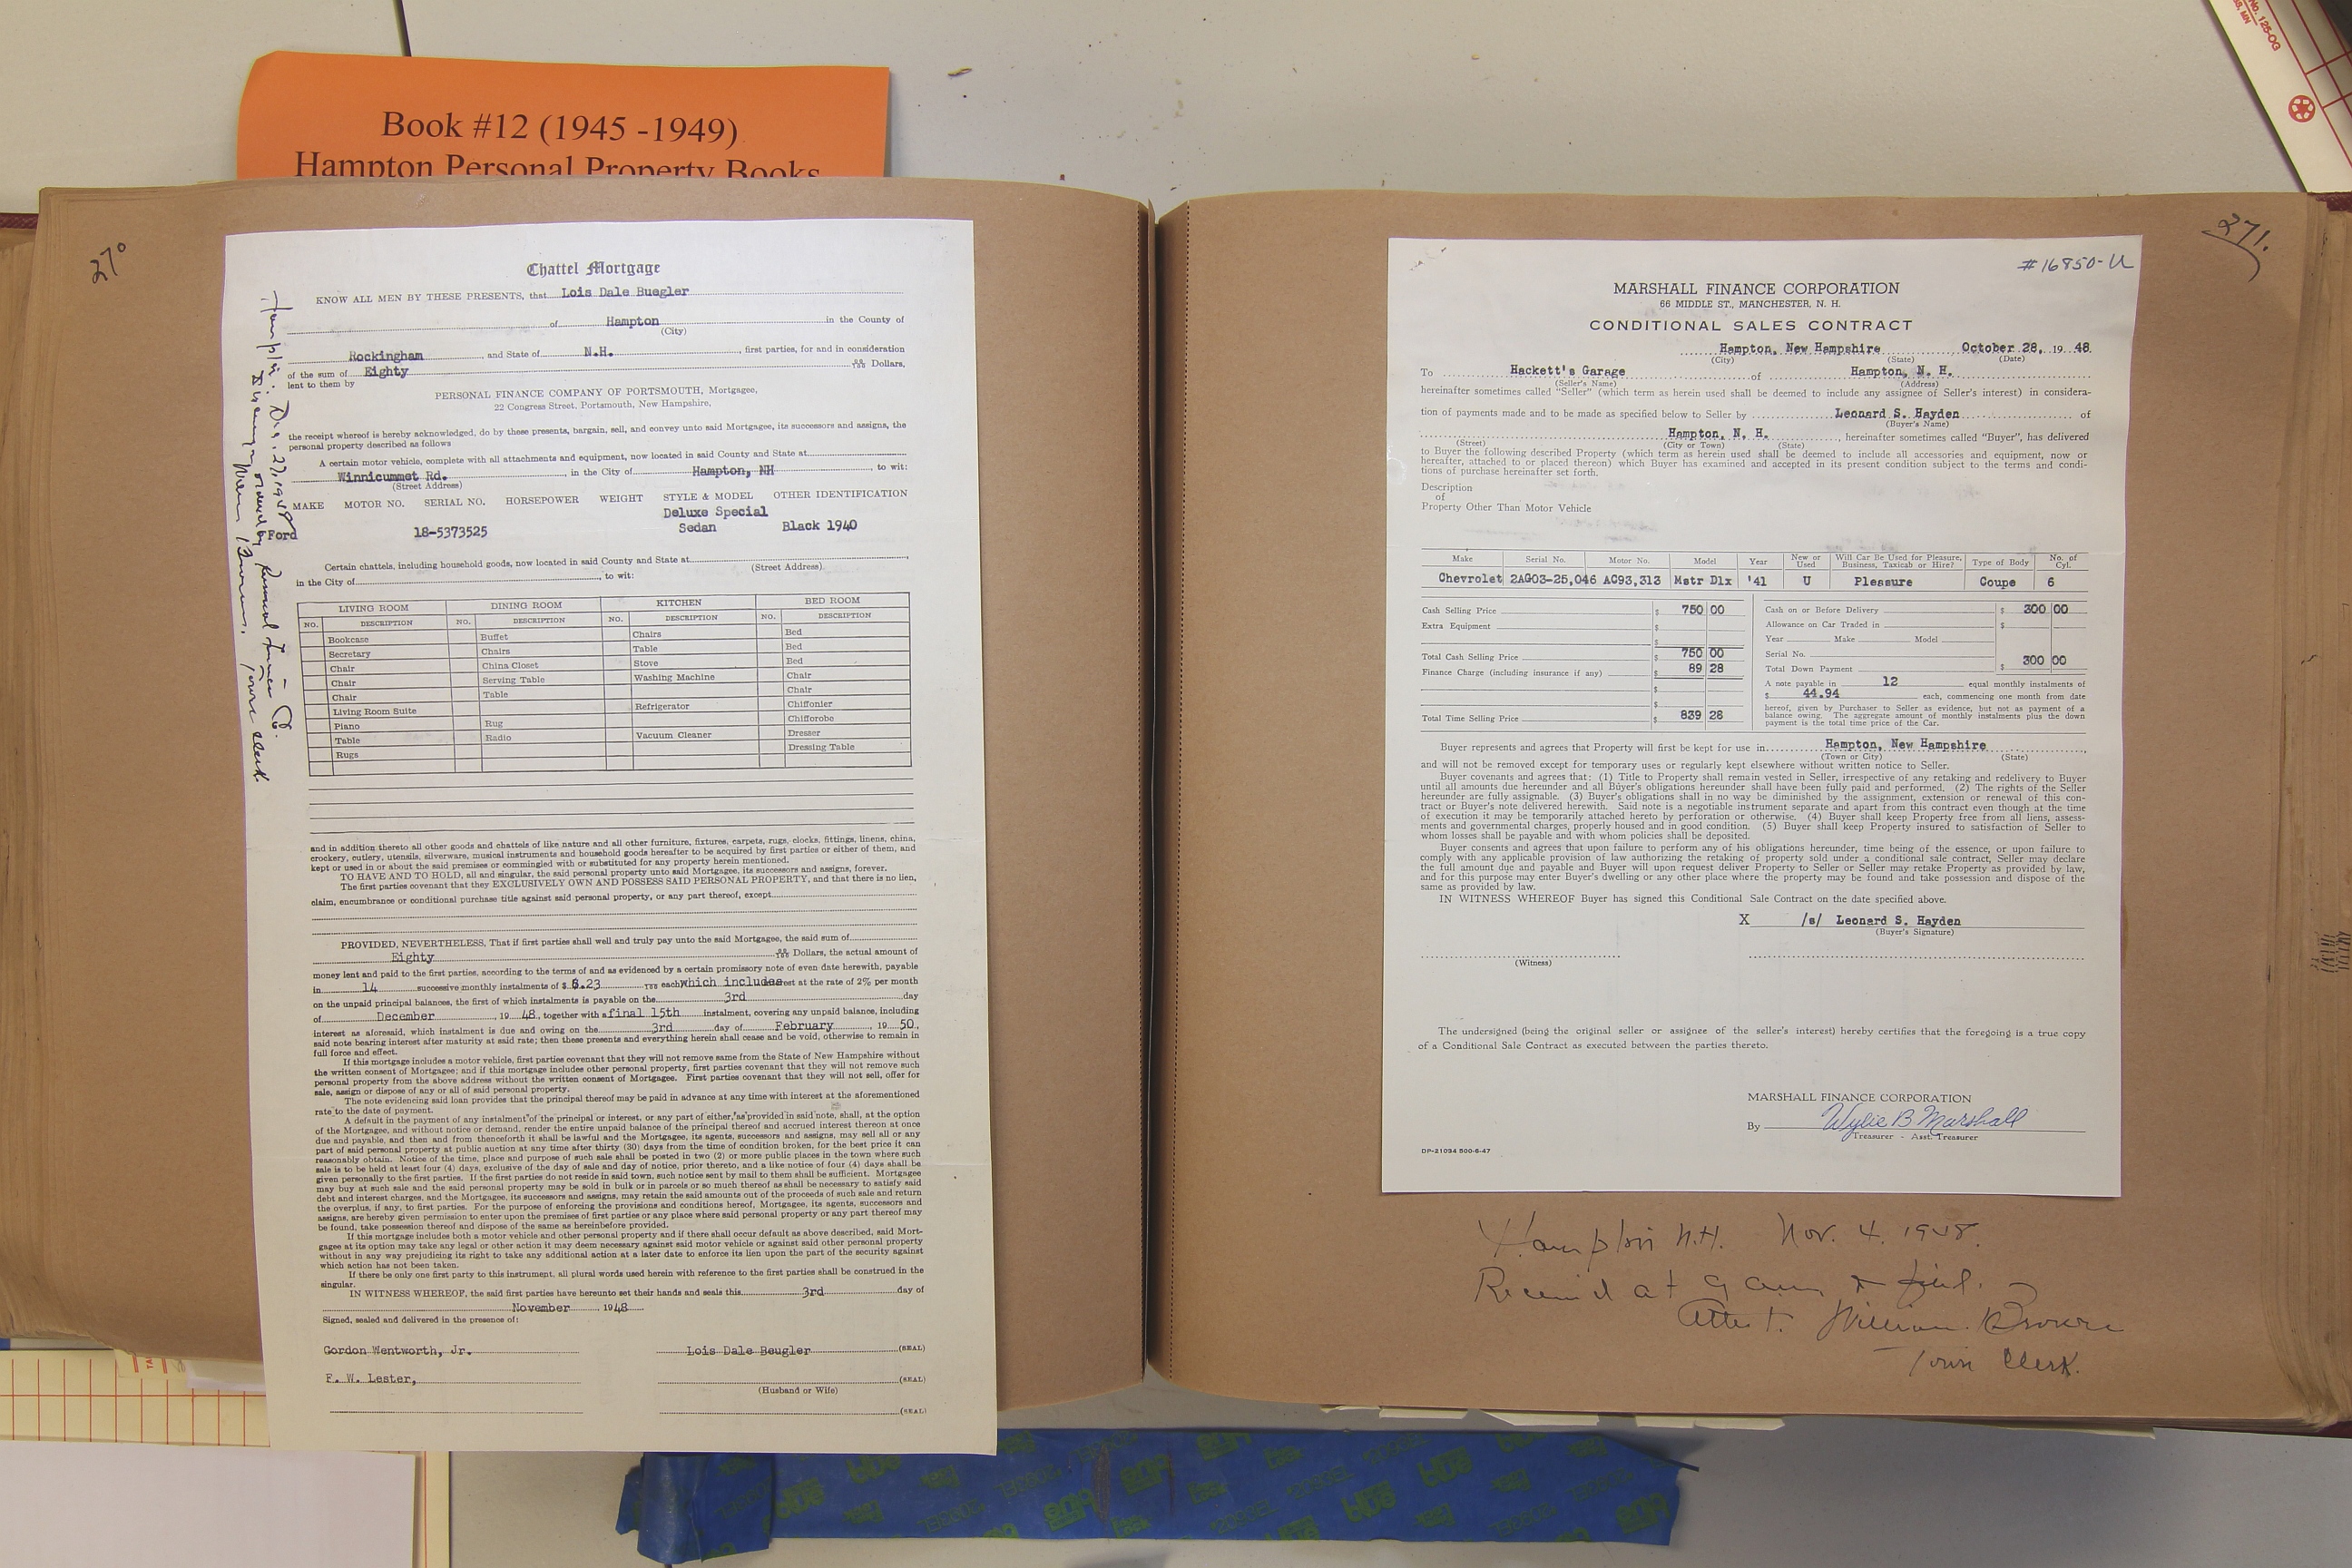 Book #12 (1945 -1949)
Hampton Personal Property Books
270
Chattel Mortgage
KNOW ALL MEN BY THESE PRESENTS, that Lois Dale Buegler
of Hampton in the County of
(City)
Rockingham, and State of N.H., first parties, for and in consideration
of the sum of Eighty Dollars,
lent to them by
PERSONAL FINANCE COMPANY OF PORTSMOUTH, Mortgagee,
22 Congress Street, Portsmouth, New Hampshire,
the receipt whereof is hereby acknowledged, do by these presents, bargain, sell, and convey unto said Mortgagee, its successors and assigns, the
personal property described as follows
A certain motor vehicle, complete with all attachments and equipment, now located in said County and State at
Winnicummet Rd., in the City of Hampton, NH, to wit:
(Street Address)
MAKE MOTOR NO. SERIAL NO. HORSEPOWER WEIGHT STYLE & MODEL OTHER IDENTIFICATION
Deluxe Special
Ford 18-5373525 Sedan Black 1940
Certain chattels, including household goods, now located in said County and State at
(Street Address)
in the City of , to wit:
LIVING ROOM DINING ROOM KITCHEN BED ROOM
NO. DESCRIPTION NO. DESCRIPTION NO. DESCRIPTION NO. DESCRIPTION
Bookcase Buffet Chairs Bed
Secretary Chairs Table Bed
Chair China Closet Stove Bed
Chair Serving Table Washing Machine Chair
Chair Table Chair
Living Room Suite Refrigerator Chiffonier
Piano Rug Chifforobe
Table Radio Vacuum Cleaner Dresser
Rugs Dressing Table
and in addition thereto all other goods and chattels of like nature and all other furniture, fixtures, carpets, rugs, clocks, fittings, linens, china,
crockery, cutlery, utensils, silverware, musical instruments and household goods hereafter to be acquired by first parties or either of them, and
kept or used in or about the said premises or commingled with or substituted for any property herein mentioned.
TO HAVE AND TO HOLD, all and singular, the said personal property unto said Mortgagee, its successors and assigns, forever.
The first parties covenant that they EXCLUSIVELY OWN AND POSSESS SAID PERSONAL PROPERTY, and that there is no lien,
claim, encumbrance or conditional purchase title against said personal property, or any part thereof, except
PROVIDED, NEVERTHELESS, That if first parties shall well and truly pay unto the said Mortgagee, the said sum of
Eighty Dollars, the actual amount of
money lent and paid to the first parties, according to the terms of and as evidenced by a certain promissory note of even date herewith, payable
in 14 successive monthly instalments of $ 6.23 each which includes interest at the rate of 2% per month
on the unpaid principal balances, the first of which instalments is payable on the 3rd day
of December, 19 48, together with a final 15th instalment, covering any unpaid balance, including
interest as aforesaid, which instalment is due and owing on the 3rd day of February, 19 50,
said note bearing interest after maturity at said rate; then these presents and everything herein shall cease and be void, otherwise to remain in
full force and effect.
If this mortgage includes a motor vehicle, first parties covenant that they will not remove same from the State of New Hampshire without
the written consent of Mortgagee; and if this mortgage includes other personal property, first parties covenant that they will not remove such
personal property from the above address without the written consent of Mortgagee. First parties covenant that they will not sell, offer for
sale, assign or dispose of any or all of said personal property.
The note evidencing said loan provides that the principal thereof may be paid in advance at any time with interest at the aforementioned
rate to the date of payment.
A default in the payment of any instalment of the principal or interest, or any part of either, as provided in said note, shall, at the option
of the Mortgagee, and without notice or demand, render the entire unpaid balance of the principal thereof and accrued interest thereon at once
due and payable, and then and from thenceforth it shall be lawful and the Mortgagee, its agents, successors and assigns, may sell all or any
part of said personal property at public auction at any time after thirty (30) days from the time of condition broken, for the best price it can
reasonably obtain. Notice of the time, place and purpose of such sale shall be posted in two (2) or more public places in the town where such
sale is to be held at least four (4) days, exclusive of the day of sale and day of notice, prior thereto, and a like notice of four (4) days shall be
given personally to the first parties. If the first parties do not reside in said town, such notice sent by mail to them shall be sufficient. Mortgagee
may buy at such sale and the said personal property may be sold in bulk or in parcels or so much thereof as shall be necessary to satisfy said
debt and interest charges, and the Mortgagee, its successors and assigns, may retain the said amounts out of the proceeds of such sale and return
the overplus, if any, to first parties. For the purpose of enforcing the provisions and conditions hereof, Mortgagee, its agents, successors and
assigns, are hereby given permission to enter upon the premises of first parties or any place where said personal property or any part thereof may
be found, take possession thereof and dispose of the same as hereinbefore provided.
If this mortgage includes both a motor vehicle and other personal property and if there shall occur default as above described, said Mort-
gagee at its option may take any legal or other action it may deem necessary against said motor vehicle or against said other personal property
without in any way prejudicing its right to take any additional action at a later date to enforce its lien upon the part of the security against
which action has not been taken.
If there be only one first party to this instrument, all plural words used herein with reference to the first parties shall be construed in the
singular.
IN WITNESS WHEREOF, the said first parties have hereunto set their hands and seals this 3rd day of
November, 1948
Signed, sealed and delivered in the presence of:
Gordon Wentworth, Jr. Lois Dale Beugler (SEAL)
F. W. Lester, (SEAL)
(Husband or Wife)
(SEAL)
Hampton: Dec. 27, 1948
Discharge ordered by Personal Finance Co.
William Brown, Town Clerk
271.
#16850-U
MARSHALL FINANCE CORPORATION
66 MIDDLE ST., MANCHESTER, N. H.
CONDITIONAL SALES CONTRACT
Hampton, New Hampshire October 28, 19 48
(City) (State) (Date)
To Hackett's Garage of Hampton, N. H.
(Seller's Name) (Address)
hereinafter sometimes called "Seller" (which term as herein used shall be deemed to include any assignee of Seller's interest) in considera-
tion of payments made and to be made as specified below to Seller by Leonard S. Hayden of
(Buyer's Name)
Hampton, N. H., hereinafter sometimes called "Buyer", has delivered
(Street) (City or Town) (State)
to Buyer the following described Property (which term as herein used shall be deemed to include all accessories and equipment, now or
hereafter, attached to or placed thereon) which Buyer has examined and accepted in its present condition subject to the terms and condi-
tions of purchase hereinafter set forth.
Description
of
Property Other Than Motor Vehicle
Make Serial No. Motor No. Model Year New or Used Will Car Be Used for Pleasure, Business, Taxicab or Hire? Type of Body No. of Cyl.
Chevrolet 2AG03-25,046 AC93,313 Mstr Dlx '41 U Pleasure Coupe 6
Cash Selling Price $ 750 00 Cash on or Before Delivery $ 300 00
Extra Equipment $ Allowance on Car Traded in $
$ Year Make Model
Total Cash Selling Price $ 750 00 Serial No.
Finance Charge (including insurance if any) $ 89 28 Total Down Payment $ 300 00
$ A note payable in 12 equal monthly instalments of
$ $ 44.94 each, commencing one month from date
hereof, given by Purchaser to Seller as evidence, but not as payment of a
balance owing. The aggregate amount of monthly instalments plus the down
Total Time Selling Price $ 839 28 payment is the total time price of the Car.
Buyer represents and agrees that Property will first be kept for use in Hampton, New Hampshire,
(Town or City) (State)
and will not be removed except for temporary uses or regularly kept elsewhere without written notice to Seller.
Buyer covenants and agrees that: (1) Title to Property shall remain vested in Seller, irrespective of any retaking and redelivery to Buyer
until all amounts due hereunder and all Buyer's obligations hereunder shall have been fully paid and performed. (2) The rights of the Seller
hereunder are fully assignable. (3) Buyer's obligations shall in no way be diminished by the assignment, extension or renewal of this con-
tract or Buyer's note delivered herewith. Said note is a negotiable instrument separate and apart from this contract even though at the time
of execution it may be temporarily attached hereto by perforation or otherwise. (4) Buyer shall keep Property free from all liens, assess-
ments and governmental charges, properly housed and in good condition. (5) Buyer shall keep Property insured to satisfaction of Seller to
whom losses shall be payable and with whom policies shall be deposited.
Buyer consents and agrees that upon failure to perform any of his obligations hereunder, time being of the essence, or upon failure to
comply with any applicable provision of law authorizing the retaking of property sold under a conditional sale contract, Seller may declare
the full amount due and payable and Buyer will upon request deliver Property to Seller or Seller may retake Property as provided by law,
and for this purpose may enter Buyer's dwelling or any other place where the property may be found and take possession and dispose of the
same as provided by law.
IN WITNESS WHEREOF Buyer has signed this Conditional Sale Contract on the date specified above.
X /s/ Leonard S. Hayden
(Buyer's Signature)
(Witness)
The undersigned (being the original seller or assignee of the seller's interest) hereby certifies that the foregoing is a true copy
of a Conditional Sale Contract as executed between the parties thereto.
MARSHALL FINANCE CORPORATION
By Wylie B Marshall
Treasurer - Asst. Treasurer
DP-21034 500-6-47
Hampton N.H. Nov. 4, 1948.
Received at 9 am & filed.
Attest. William Brown
Town Clerk.
No. 125-OG